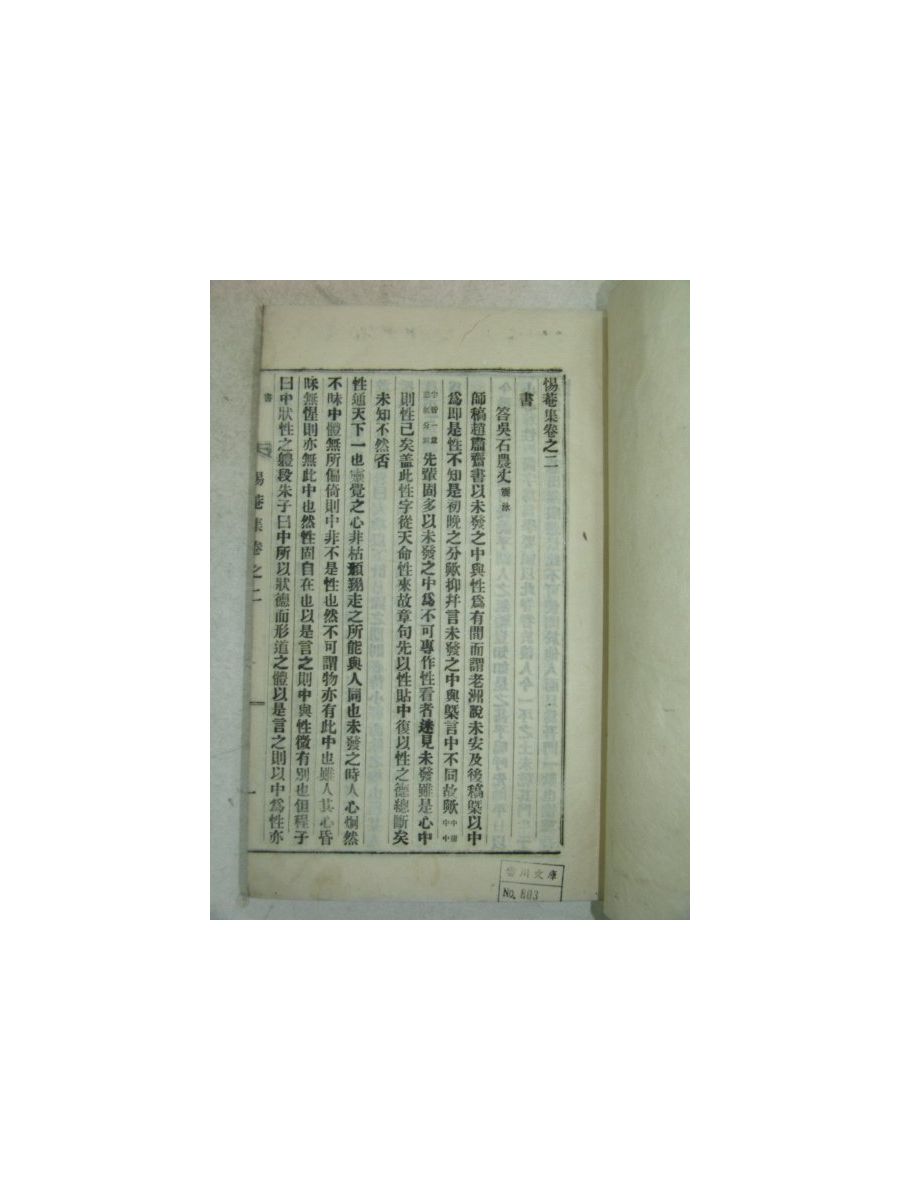 惕菴集卷之二
書
答吳石農丈 震泳
師稿趙肅齋書以未發之中與性爲有間而謂老洲說未安及後稿槩以中
爲即是性不知是初晚之分歟抑幷言未發之中與槩言中不同故歟 中庸中
先輩固多以未發之中爲不可專作性看者迷見未發雖是心中
則性已矣盖此性字從天命性來故章句先以性貼中復以性之德總斷矣
未知不然否
性通天下一也靈覺之心非枯顙鶨走之所能與人同也未發之時人心烱然
不昧中體無所偏倚則中非不是性也然不可謂物亦有此中也雖人其心昏
昧無惺則亦無此中也然性固自在也以是言之則中與性微有別也但程子
曰中狀性之軆段朱子曰中所以狀德而形道之體以是言之則以中爲性亦
書
惕菴集卷之二
一
雲川文庫
No. 803